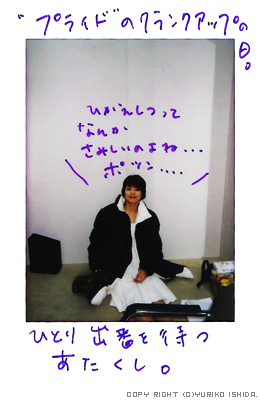 "プライド"のクランクアップの日。
ひがえしつって
なんか
さみしいのよね...
ポツン....
ひとり出番を待つ
あたくし。
COPY RIGHT (C)YURIKO ISHIDA.